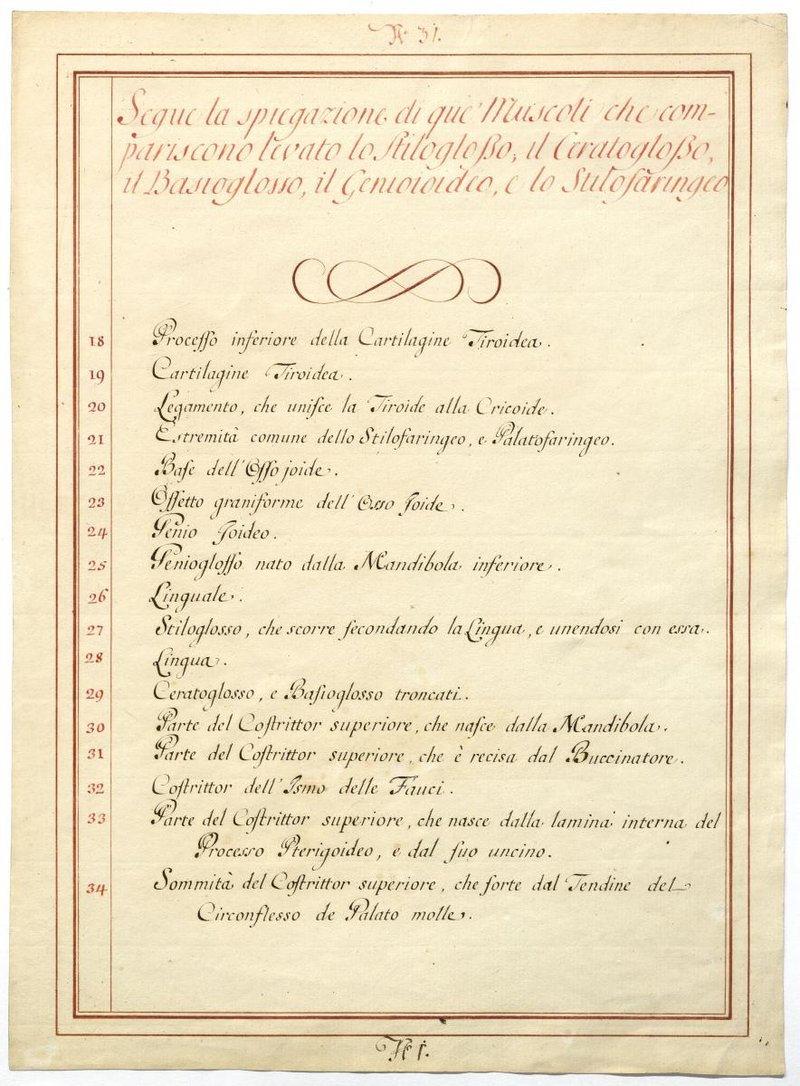 N. 31.
Segue la spiegazione di que' Muscoli che com-
pariscono levato lo Stilogloßo, il Ceratogloßo,
il Basioglosso, il Genioioideo, e lo Stilofaringeo
18 Proceſſo inferiore della Cartilagine Tiroidea.
19 Cartilagine Tiroidea.
20 Legamento, che uniſce la Tiroide alla Cricoide.
21 Estremità comune dello Stilofaringeo, e Palatofaringeo.
22 Baſe dell'Oſſo joide.
23 Oſſetto graniforme dell'Osso Joide.
24 Genio Joideo.
25 Geniogloſſo nato dalla Mandibola inferiore.
26 Linguale.
27 Stiloglosso, che scorre ſecondando la Lingua, e unendosi con essa.
28 Lingua.
29 Ceratoglosso, e Baſioglosso troncati.
30 Parte del Coſtrittor superiore, che naſce dalla Mandibola.
31 Parte del Coſtrittor superiore, che è recisa dal Buccinatore.
32 Coſtrittor dell'Ismo delle Fauci.
33 Parte del Coſtrittor superiore, che nasce dalla lamina interna del
Processo Pterigoideo, e dal ſuo uncino.
34 Sommità del Coſtrittor superiore, che ſorte dal Tendine del
Circonflesso de Palato molle.